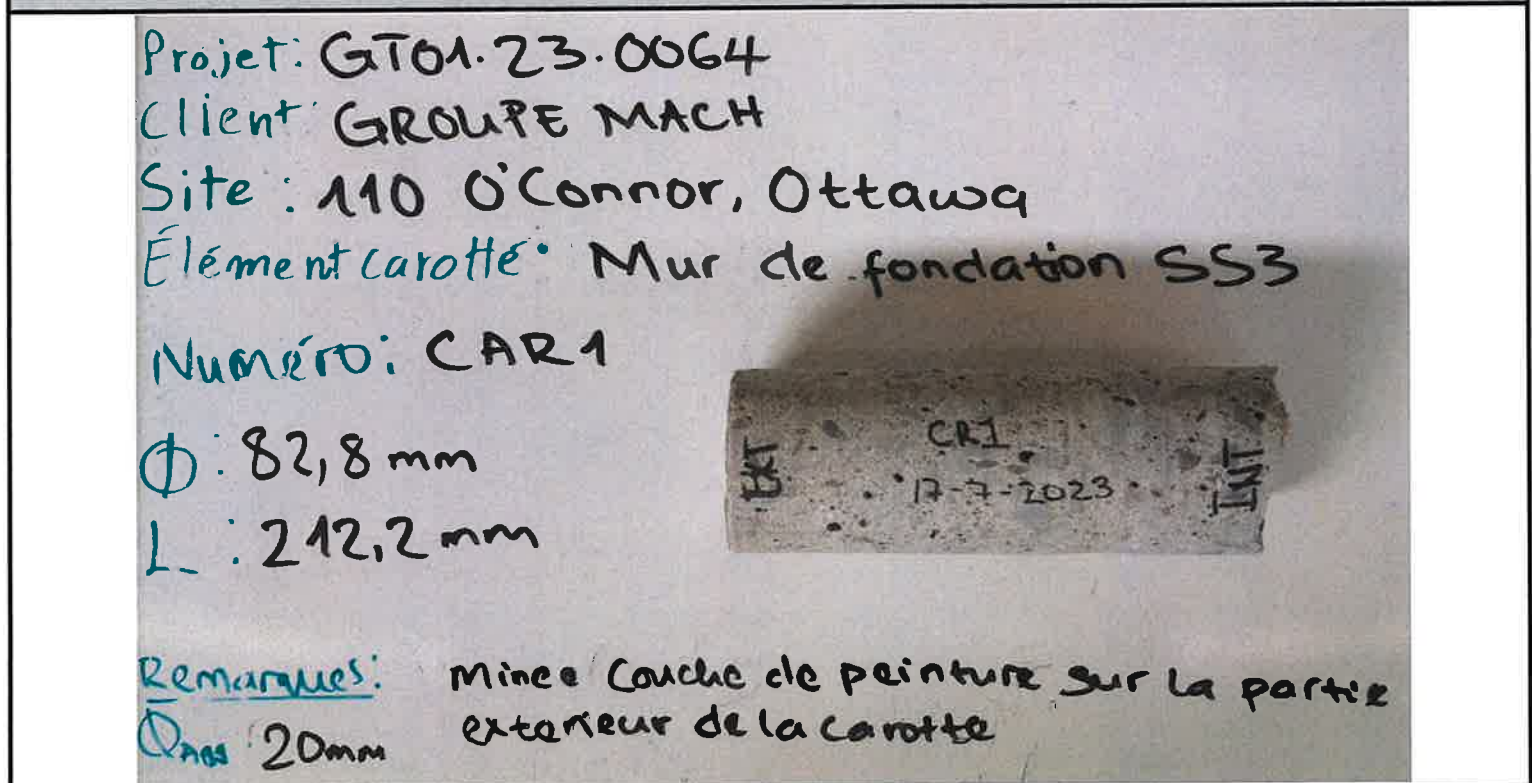 Projet: GT01.23.0064
Client: GROUPE MACH
Site: 110 O'Connor, Ottawa
Élément carotté: Mur de fondation SS3
Numéro: CAR1
Φ: 82,8 mm
L: 212,2 mm
EXT
CR1
17-7-2023
INT
Remarques: Mince couche de peinture sur la partie
exterieur de la carotte
20mm